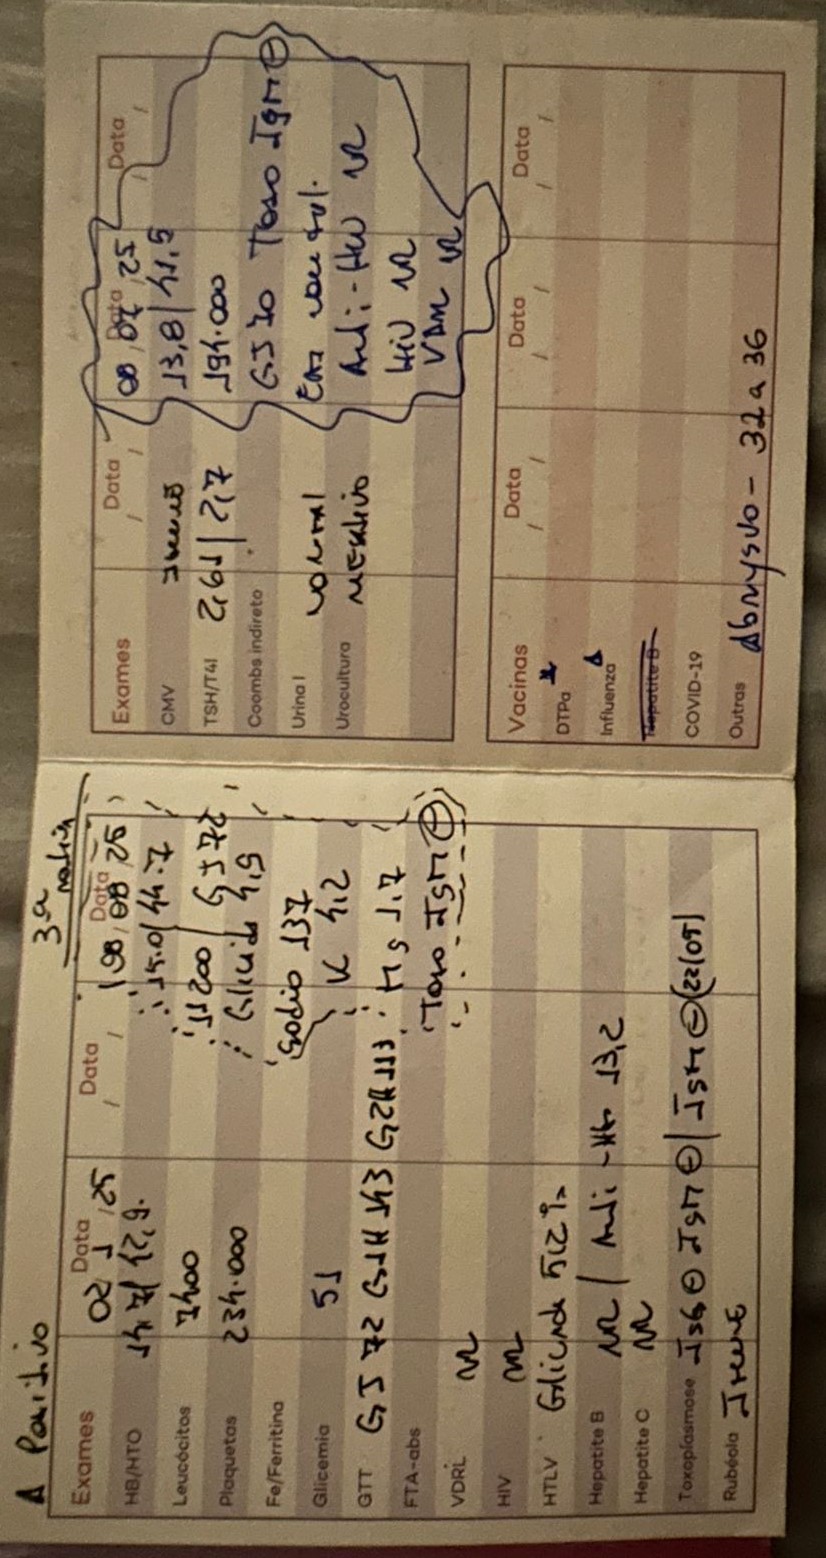 A Positivo
3ª rotina
Exames Data Data Data
02 / 1 / 25
08 / 08 / 25
HB/HTO 14,7 / 42,9. 15.0/44.7
Leucócitos 7400 11200 / GJ 72
Plaquetas 234.000 Glicada 4,9
Fe/Ferritina Sodio 137
Glicemia 51 K 4,2
GTT GJ 72 G1H 143 G2H 113 Mg 1.7
FTA-abs Toxo IgM ⊖
VDRL NR
HIV NR
HTLV Glicada 5,2%
Hepatite B NR / Anti-Hbs 13,2
Hepatite C NR
Toxoplasmose IgG ⊖ IgM ⊖ / IgM ⊖ (22/05)
Rubéola Imune
Exames Data Data Data
08 / 07 / 25
CMV Imune 13,8 / 41,5
TSH/T4l 2,61 / 2,7 194.000
Coombs indireto GJ 70 Toxo IgM ⊖
Urina I normal EAS
Urocultura negativo Anti-HCV NR
HIV NR
VDRL NR
Vacinas Data Data Data
DTPa
Influenza
Hepatite B
COVID-19
Outras Abrysvo - 32 a 36